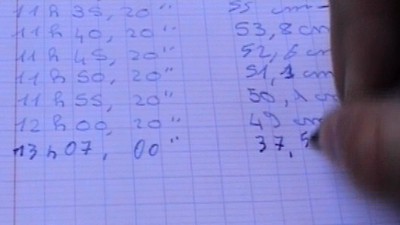 11 h 35, 20" 55 cm
11 h 40, 20" 53,8 cm
11 h 45, 20" 52,6 cm
11 h 50, 20" 51,3 cm
11 h 55, 20" 50,1 cm
12 h 00, 20" 49 cm
13 h 07, 00" 37,5